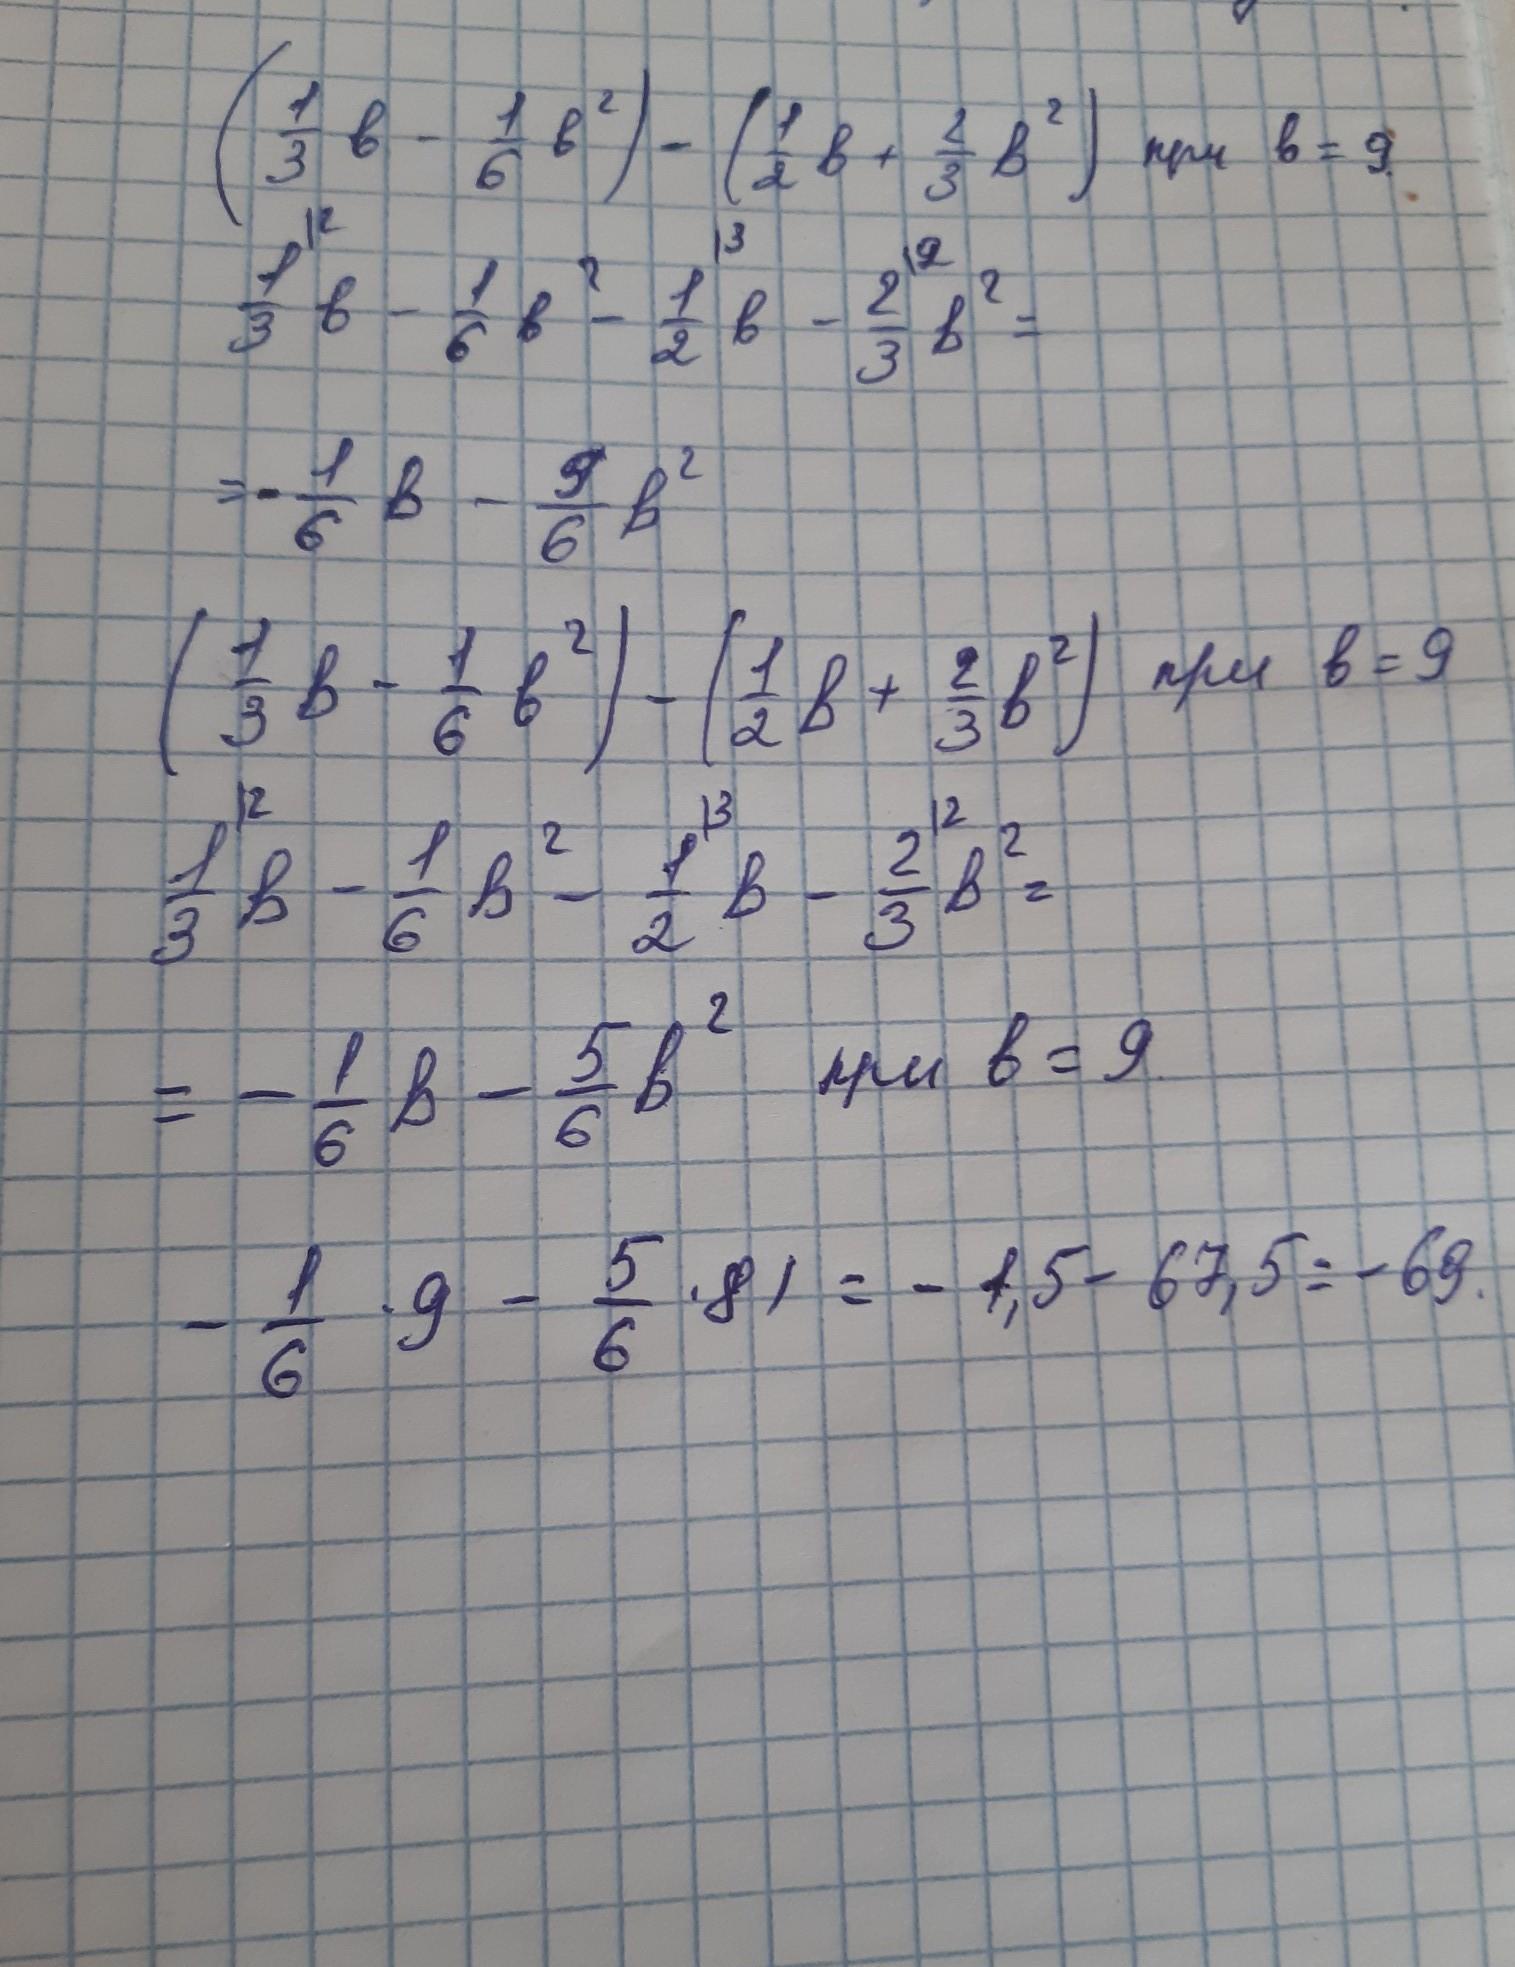 (1/3 в - 1/6 в²) - (1/2 в + 2/3 в²) при в = 9.
1/3|² в - 1/6 в² - 1/2|³ в - 2/3|² в² =
= - 1/6 в - 9/6 в²
(1/3 в - 1/6 в²) - (1/2 в + 2/3 в²) при в = 9
1/3|² в - 1/6 в² - 1/2|³ в - 2/3|² в² =
= - 1/6 в - 5/6 в² при в = 9.
- 1/6 · 9 - 5/6 · 81 = - 1,5 - 67,5 = - 69.